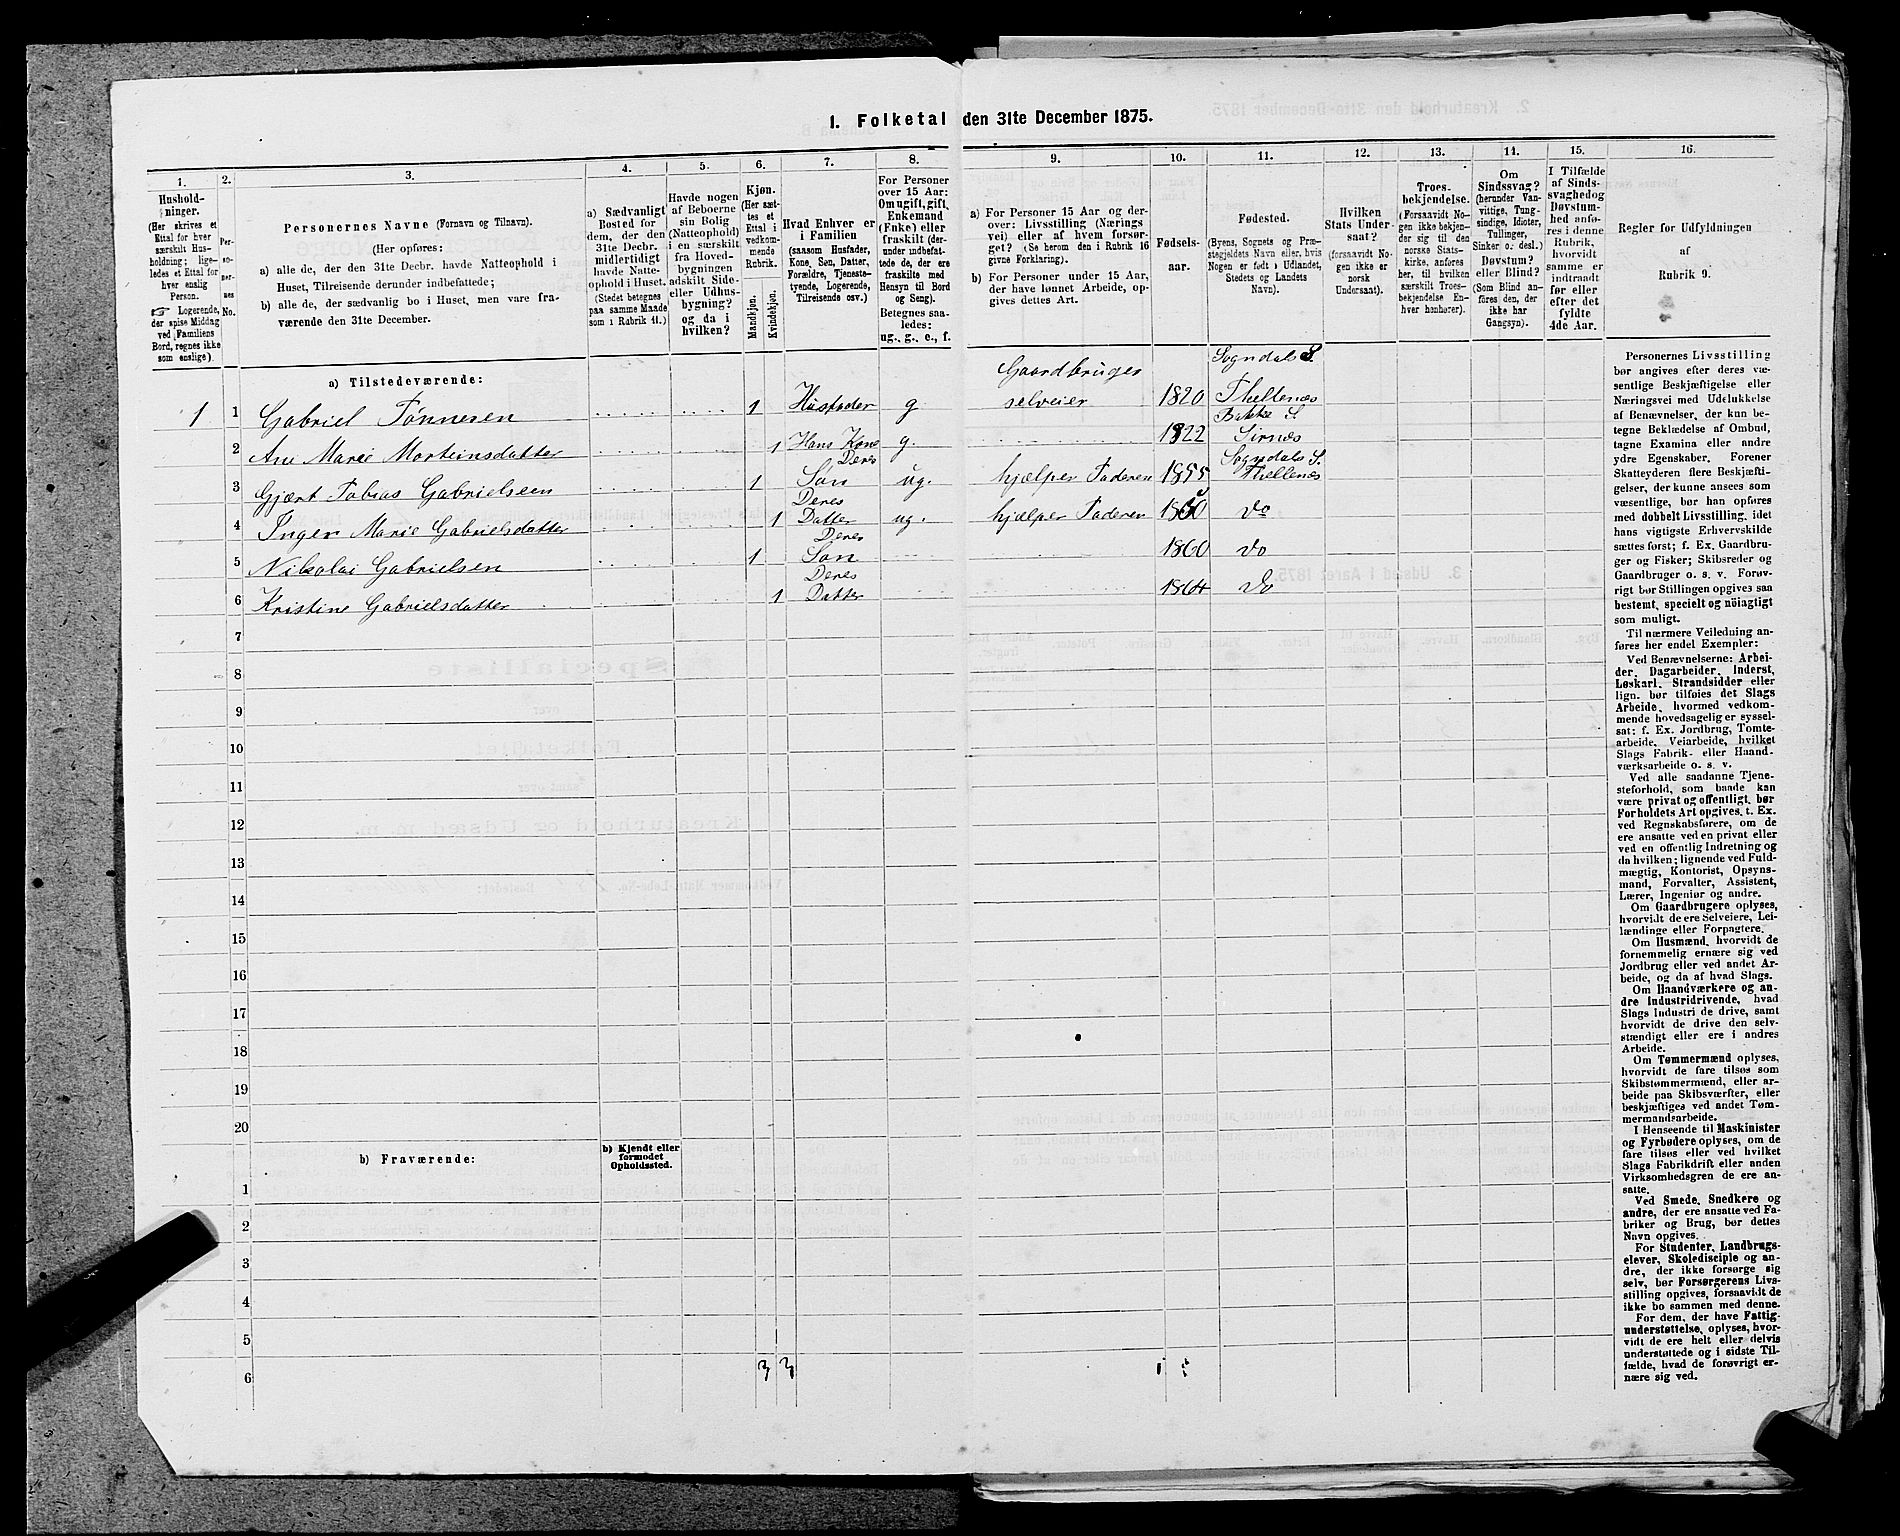 1. Folketal den 31te December 1875.
1. 2. 3. 4. 5. 6. 7. 8. 9. 10. 11. 12. 13. 14. 15. 16.
Hushold-
ninger.
(Her skrives et
Ettal for hver
særskilt Hus-
holdning; lige-
ledes et Ettal for
hver enslig
Person.
☞ Logerende,
der spise Middag
ved Familiens
Bord, regnes ikke
som enslige).
Per-
so-
ner-
nes
No.
Personernes Navne (Fornavn og Tilnavn).
(Her opføres:
a) alle de, der den 31te Decbr. havde Natteophold i
Huset, Tilreisende derunder indbefattede;
b) alle de, der sædvanlig bo i Huset, men vare fra-
værende den 31te December.
a) Sædvanligt
Bosted for
dem, der den
31te Decbr.
midlertidigt
havde Natte-
ophold i Huset.
(Stedet betegnes
paa samme Maade
som i Rubrik 11.)
Havde nogen
af Beboerne
sin Bolig
(Natteophold)
i en særskilt
fra Hoved-
bygningen
adskilt Side-
eller Udhus-
bygning?
og da i
hvilken?
Kjøn.
(Her sæt-
tes et
Ettal i
vedkom-
mende
Rubrik.
Mandkjøn.
Kvindekjøn.
Hvad Enhver er
i Familien
(saasom Husfader,
Kone, Søn, Datter,
Forældre, Tjeneste-
tyende, Logerende,
Tilreisende osv.)
For Personer
over 15 Aar:
Om ugift, gift,
Enkemand
(Enke) eller
fraskilt (der-
under indbefat-
tede de, der ere
fraskilte med
Hensyn til Bord
og Seng).
Betegnes saa-
ledes:
ug., g., e., f.
a) For Personer 15 Aar og der-
over: Livsstilling (Nærings
vei) eller af hvem forsør-
get? (Se herom den i Rubrik 16
givne Forklaring).
b) For Personer under 15 Aar,
der have lønnet Arbeide, op-
gives dettes Art.
Fødsels-
aar.
Fødested.
(Byens, Sognets og Præ-
stegjeldets Navn eller, hvis
Nogen er født i Udlandet,
Stedets og Landets
Navn).
Hvilken
Stats Under-
saat?
(forsaavidt No-
gen ikke er
norsk
Undersaat).
Troes-
bekjendelse.
(Forsaavidt No-
gen ikke bekjen-
der sig til den
norske Stats-
kirke, anføres
her, til hvilken
særskilt Troes-
bekjendelse En-
hver henhører).
Om
Sindssvag?
(herunder Van-
vittige, Tung-
sindige, Idioter,
Tullinger,
Sinker o. desl.)
Døvstum?
eller Blind?
(Som Blind an-
føres den, der
ikke har
Gangsyn).
I Tilfælde
af Sinds-
svaghedog
Døvstum-
hed anfø-
res i denne
Rubrik,
hvorvidt
samme er
indtraadt
før eller
efter det
fyldte
4de Aar.
Regler for Udfyldningen
af
Rubrik 9.
a) Tilstedeværende:
1 1 Gabriel Tønnesen 1 Husfader g Gaardbruger selveier 1820 Sogndals S. Thellenæs
2 Ane Marie Morteinsdatter 1 Hans Kone g. 1822 Bakke S. Sirnæs
3 Gjært Tobias Gabrielseen 1 Deres Søn ug. hjælper Faderen 1855 Sogndals S. Thellenæs
4 Inger Marie Gabrielsdatter 1 Deres Datter ug. hjælper Faderen do
5 Nikolai Gabrielsen 1 Deres Søn 1860 do
6 Kristine Gabrielsdatter 1 Deres Datter 1864 do
7
8
9
10
11
12
13
14
15
16
17
18
19
20
b) Fraværende: b) Kjendt eller
formodet
Opholdssted.
1
2
3
4
5
6 3 3
Personernes Livsstilling
bør angives efter deres væ-
sentlige Beskjæftigelse eller
Næringsvei med Udelukkelse
af Benævnelser, der kun be-
tegne Beklædelse af Ombud,
tagne Examina eller andre
ydre Egenskaber. Forener
Skatteyderen flere Beskjæfti-
gelser, der kunne ansees som
væsentlige, bør han opføres
med dobbelt Livsstilling, idet
hans vigtigste Erhvervskilde
sættes først; f. Ex. Gaardbru-
ger og Fisker; Skibsreder og
Gaardbruger o. s. v. Forøv-
rigt bør Stillingen opgives saa
bestemt, specielt og nöiagtigt
som muligt.
Til nærmere Veiledning an-
føres her endel Exempler:
Ved Benævnelserne: Arbei-
der, Dagarbeider, Inderst,
Løskarl, Strandsidder eller
lign. bør tilføies det Slags
Arbeide, hvormed vedkom-
mende hovedsagelig er syssel-
sat; f. Ex. Jordbrug, Tomte-
arbeide, Veiarbeide, hvilket
Slags Fabrik- eller Haand-
værksarbeide o. s. v.
Ved alle saadanne Tjene-
steforhold, som baade kan
være privat og offentligt, bør
Forholdets Art opgives. t. Ex.
ved Regnskabsførere, om de
ere ansatte ved en privat eller
ved en offentlig Indretning og
da hvilken; lignende ved Fuld-
mægtig, Kontorist, Opsyns-
mand, Forvalter, Assistent,
Lærer, Ingeniør og andre.
Om Gaardbrugere oplyses,
hvorvidt de ere Selveiere, Lei-
lændinge eller Forpagtere.
Om Husmænd, hvorvidt de
fornemmelig ernære sig ved
Jordbrug eller ved andet Ar-
beide, og da af hvad Slags.
Om Haandværkere og an-
dre Industridrivende, hvad
Slags Industri de drive, samt
hvorvidt de drive den selv-
stændigt eller ere i andres
Arbeide.
Om Tømmermænd oplyses,
hvorvidt de fare tilsøs som
Skibstømmermænd, eller ar-
beide paa Skibsværfter, eller
beskjæftiges ved andet Tøm-
mermandsarbeide.
I Henseende til Maskinister
og Fyrbødere oplyses, om de
fare tilsøs eller ved hvilket
Slags Fabrikdrift eller anden
Virksomhedsgren de ere an-
satte.
Ved Smede, Snedkere og
andre, der ere ansatte ved Fa-
briker og Brug, bør dettes
Navn opgives.
For Studenter, Landbrugs-
elever, Skoledisciple og an-
dre, der ikke forsørge sig
selv, bør Forsørgerens Livs-
stilling opgives, forsaavidt de
ikke bo sammen med denne.
For dem, der have Fattig-
understøttelse, oplyses, hvor-
vidt de ere helt eller delvis
understøttede og i sidste Til-
fælde, hvad de forøvrigt er-
nære sig ved.